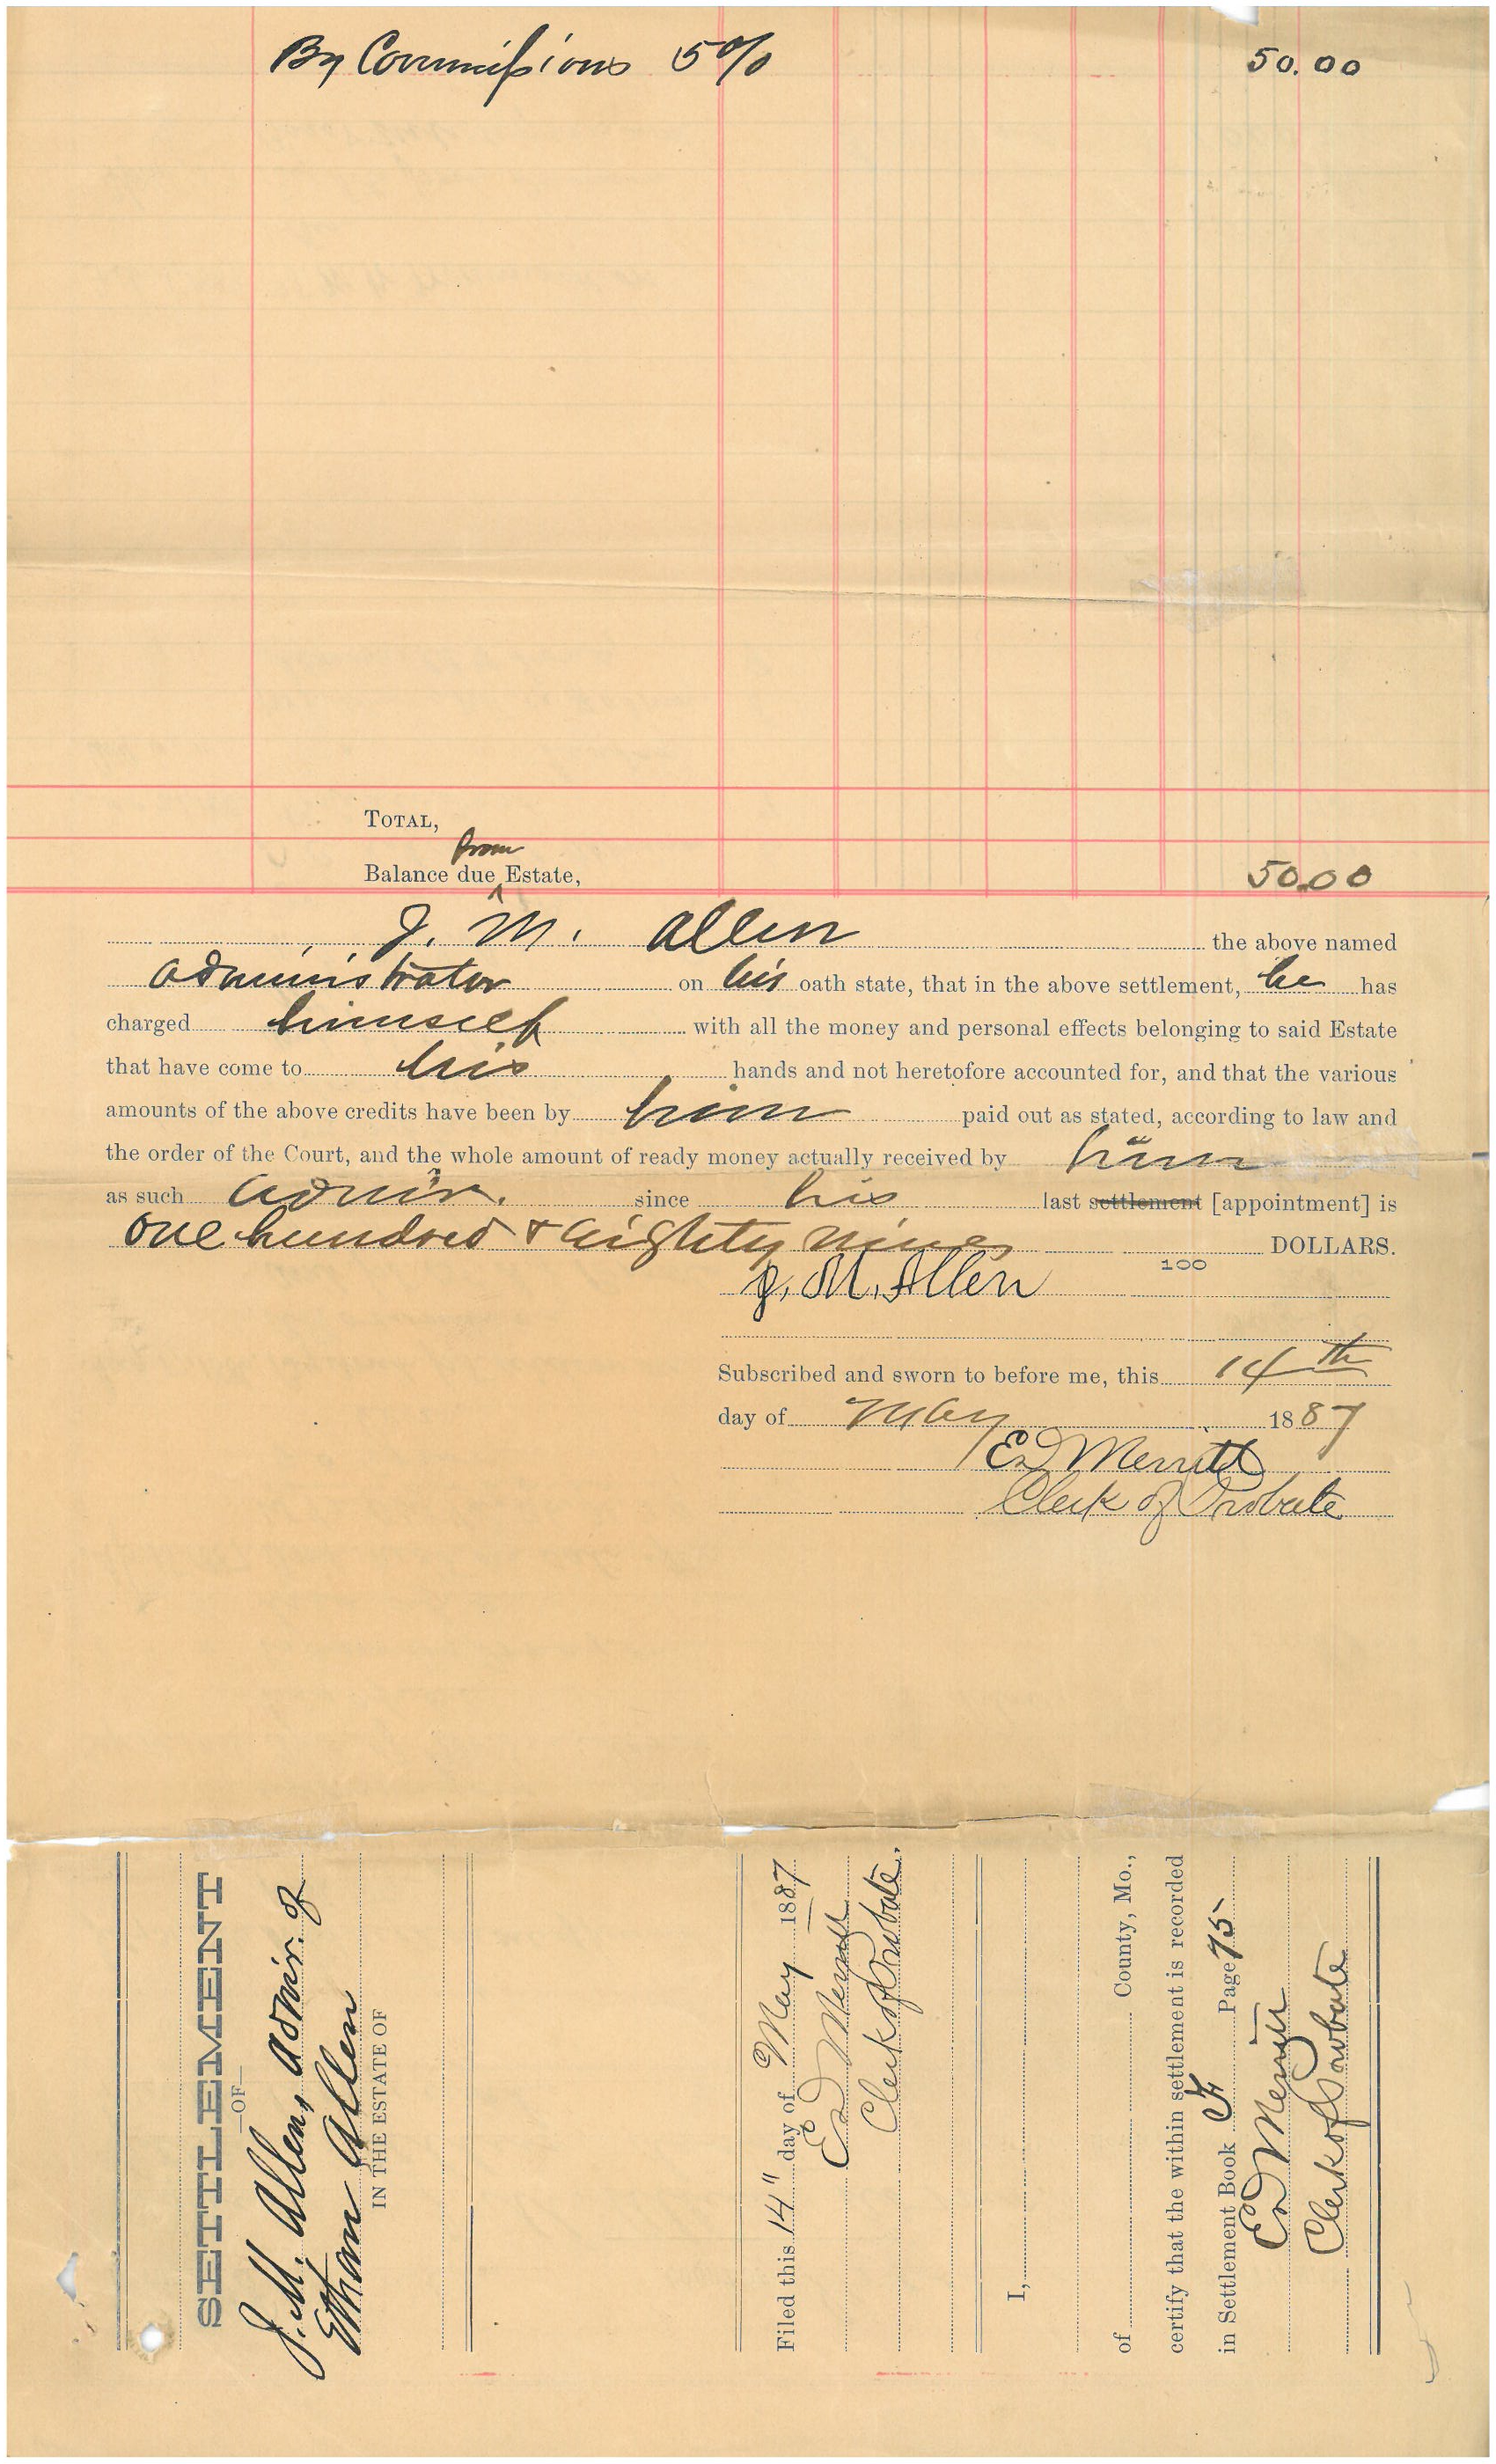 By Commissions 5% 50.00
TOTAL,
from
Balance due ^ Estate, 50.00
J. M. Allen the above named
administrator on his oath state, that in the above settlement, he has
charged himself with all the money and personal effects belonging to said Estate
that have come to his hands and not heretofore accounted for, and that the various
amounts of the above credits have been by him paid out as stated, according to law and
the order of the Court, and the whole amount of ready money actually received by him
as such admir. since his last settlement [appointment] is
One hundred & Eighty nine DOLLARS.
100
J. M. Allen
Subscribed and sworn to before me, this 14th
day of May 1887
Ed Merritt
Clerk of Probate
SETTLEMENT
—OF—
J. M. Allen, admir. of
Ethan Allen
IN THE ESTATE OF
Filed this 14" day of May 1887
Ed Merritt
Clerk of Probate.
I,
of County, Mo.,
certify that the within settlement is recorded
in Settlement Book F Page 75
Ed Merritt
Clerk of Probate